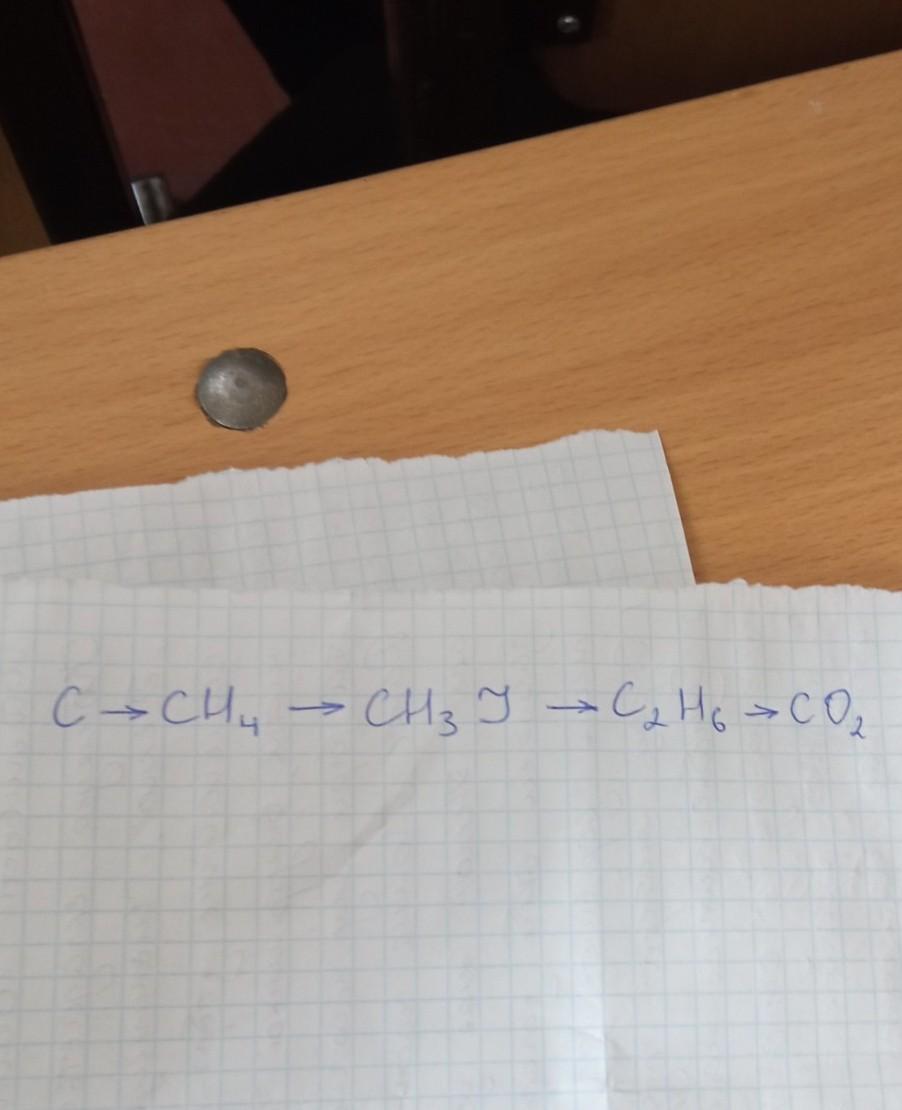 C → CH₄ → CH₃J → C₂H₆ → CO₂